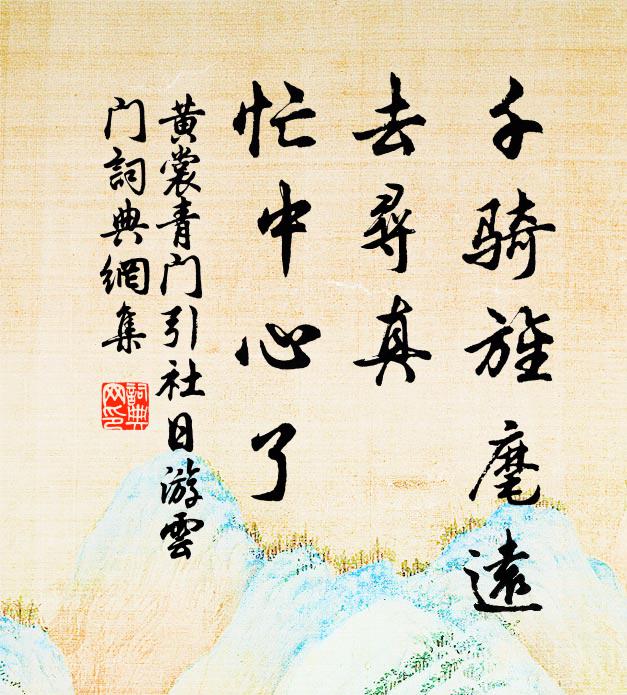 千骑旌麾遠
去尋真
忙中心了
黄裳青门引社日游雲
门詞典網集
詞典网印